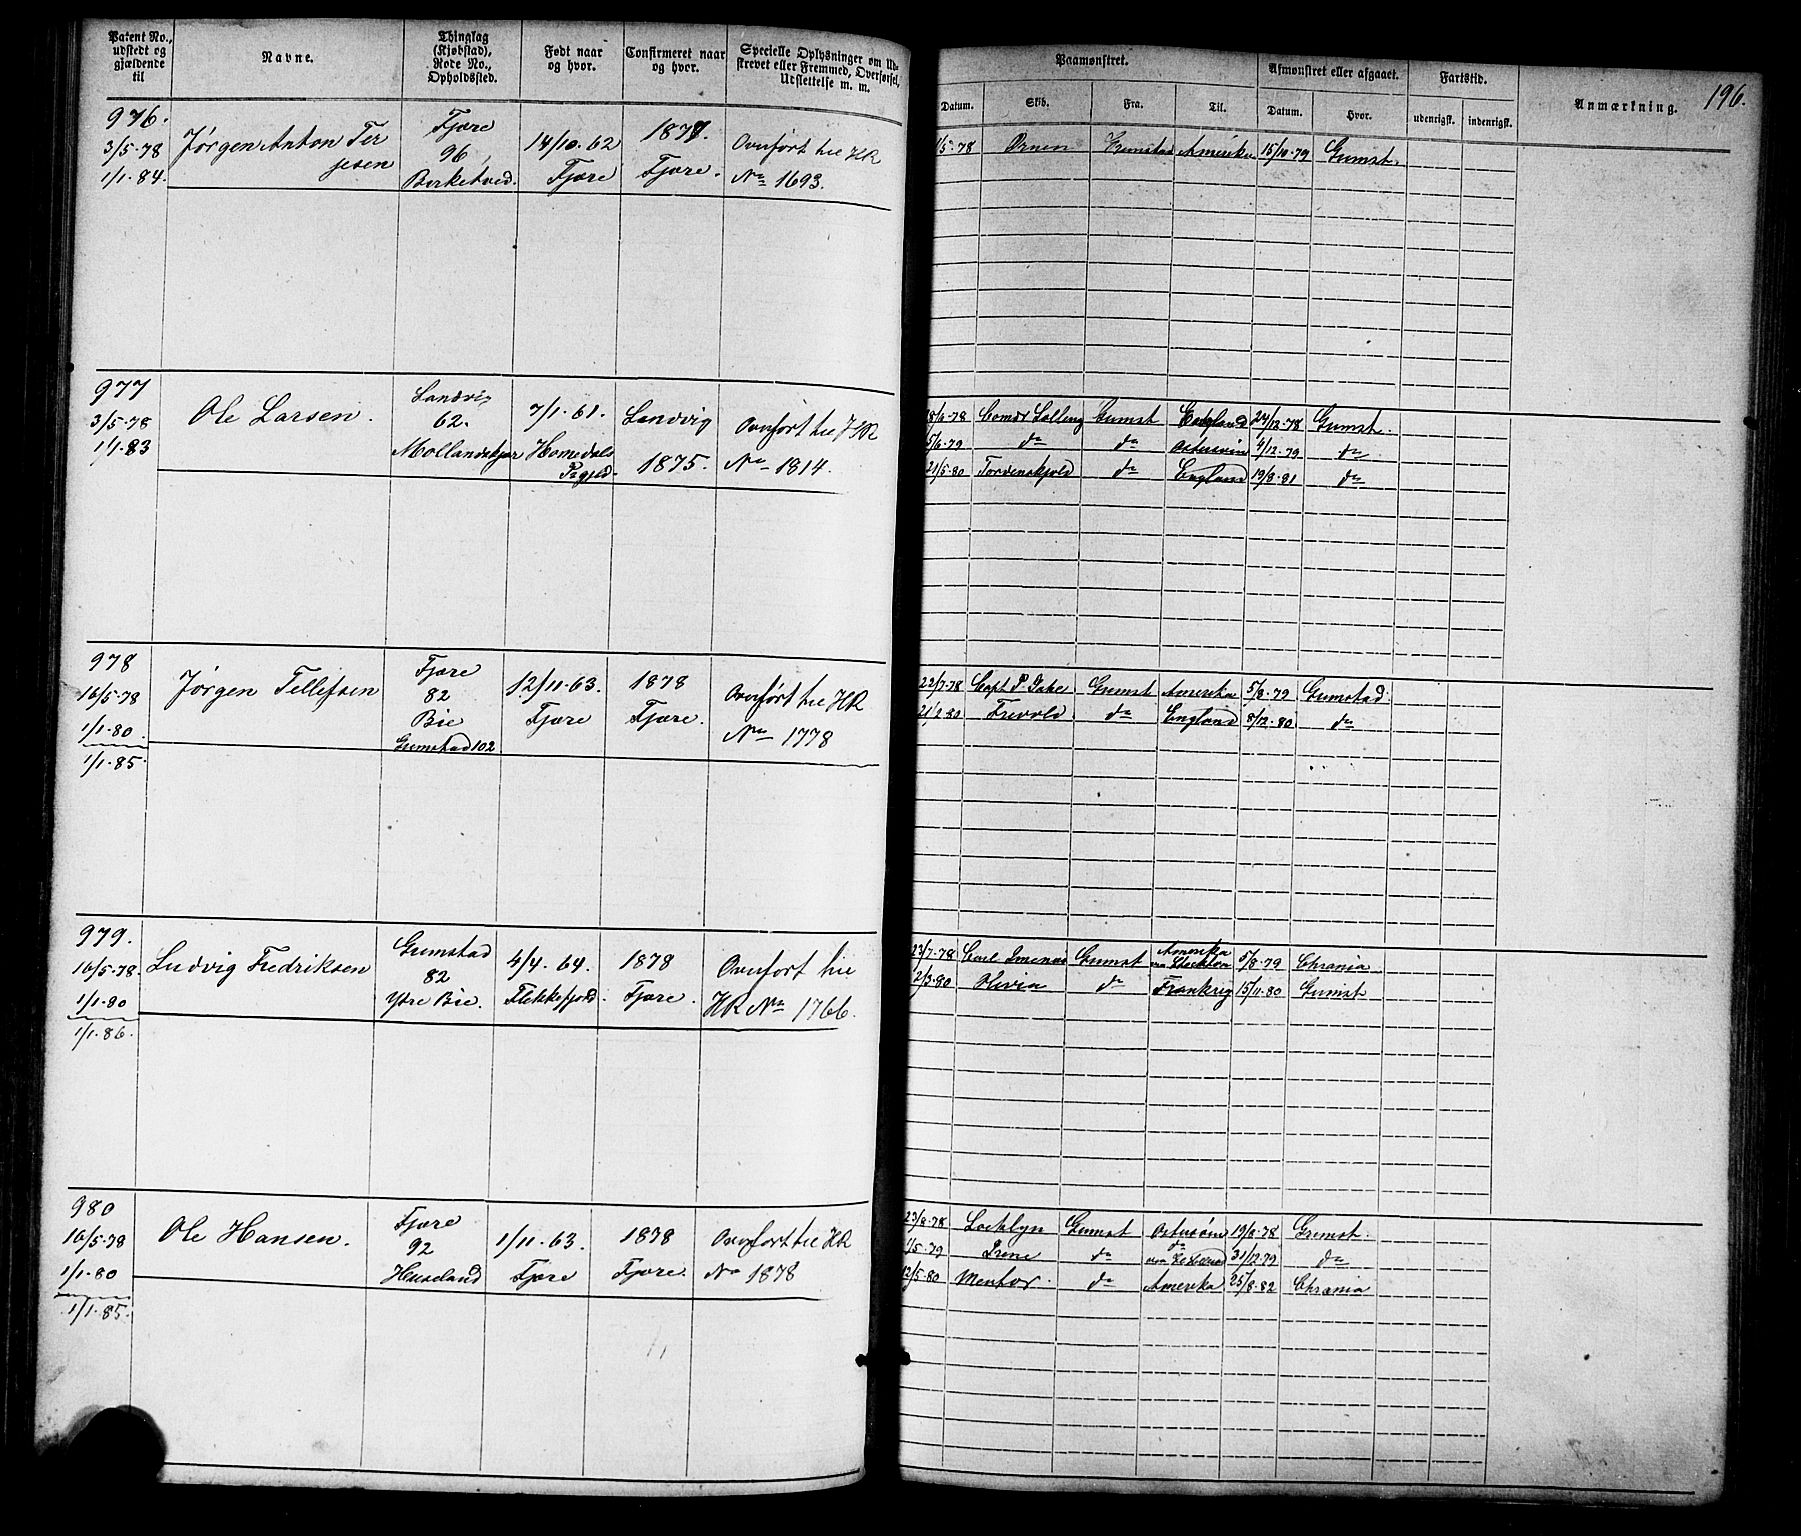 Patent No., udstedt og gjældende til | Navne. | Thinglag (Kjøbstad), Rode No., Opholdssted. | Født naar og hvor. | Confirmeret naar og hvor. | Specielle Oplysninger om Udskrevet eller Fremmed, Overførsel, Udslettelse m. m.
Paamønstret. | Afmønstret eller afgaaet. | Fartstid. | Anmærkning. | 196.
Datum. | Skib. | Fra. | Til. | Datum. | Hvor. | udenrigsk. | indenrigsk.
976. | Fjære | 1877.
3/5-78 | Jørgen Anton Ter | 96, | 14/10.62 | Ovenført til HR
1/1.84. | jesen | Birketved. | Fjære | Fjære. | No 1693.
1/5-78 | Ørnen | Grimstad | Amerika | 15/10.79 | Grimst.
977 | Landvig
3/5-78 | Ole Larsen. | 62. | 7/1.61. | Landvig | Ovenført til HR
1/1.83 | Mollandskjær | Homedals | 1875. | No 1814.
Pgjeld.
18/6-78 | Comdr Lolling | Grimst | England | 24/12.78 | Grimst.
5/6.79 | do | do | Østersøen | 4/12.79 | do
21/5.80 | Tordenskjold | do | England | 19/8.81 | do
978 | Fjære
16/5-78 | Jørgen Tellefsen | 82 | 12/11.63. | 1878 | Ovenført til HR
1/1.80. | Bie | Fjære | Fjære. | No 1778
1/1.85. | Grimstad 102
22/7-78 | Capt P. | Grimst | Amerika | 5/8.79 | Grimstad.
21/2.80 | Frevold. | do | England | 8/12.80 | do
979. | Grimstad
16/5-78. | Ludvig Fredriksen | 82 | 4/4.64. | 1878 | Ovenført til
1/1.80 | Ytre Bie. | Flekkefjord. | Fjære. | HR No 1766.
1/1.86.
23/7-78 | Carl | Grimst | Amerika | 5/8.79 | Chrania
12/3.80 | Olivia | do | Frankrig | 15/11.80 | Grimst
980 | Fjære
16/5-78 | Ole Hansen. | 92 | 1/11.63. | 1878 | Ovenført til HR
1/1.80 | Huseland | Fjære | Fjære. | No 1878
1/1.85.
23/8-78 | Lochlyn | Grimst | Østersøen | 19/8.78 | Grimst.
1/5.79 | Irene | do | do | 31/12.79 | do
12/5.80 | Mentor. | do | Amerika | 25/8.82 | Chrania